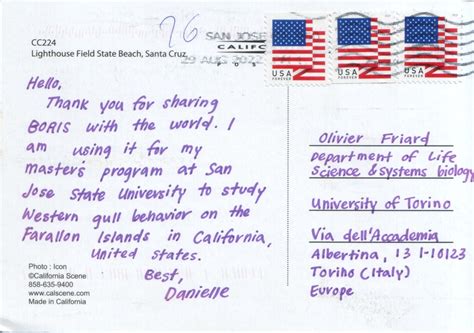 CC224
Lighthouse Field State Beach, Santa Cruz,
76
SAN JOSE
CALIF
29 AUG 2022
USA FOREVER
USA FOREVER
USA FOREVER
Hello,
Thank you for sharing
BORIS with the world. I
am using it for my
master's program at San
Jose State University to study
Western gull behavior on the
Farallon Islands in California,
United States.
Best,
Danielle
Photo : Icon
©California Scene
858-635-9400
www.calscene.com
Made in California
Olivier Friard
Department of Life
Science & systems biology
University of Torino
Via dell'Accademia
Albertina, 13 I-10123
Torino (Italy)
Europe